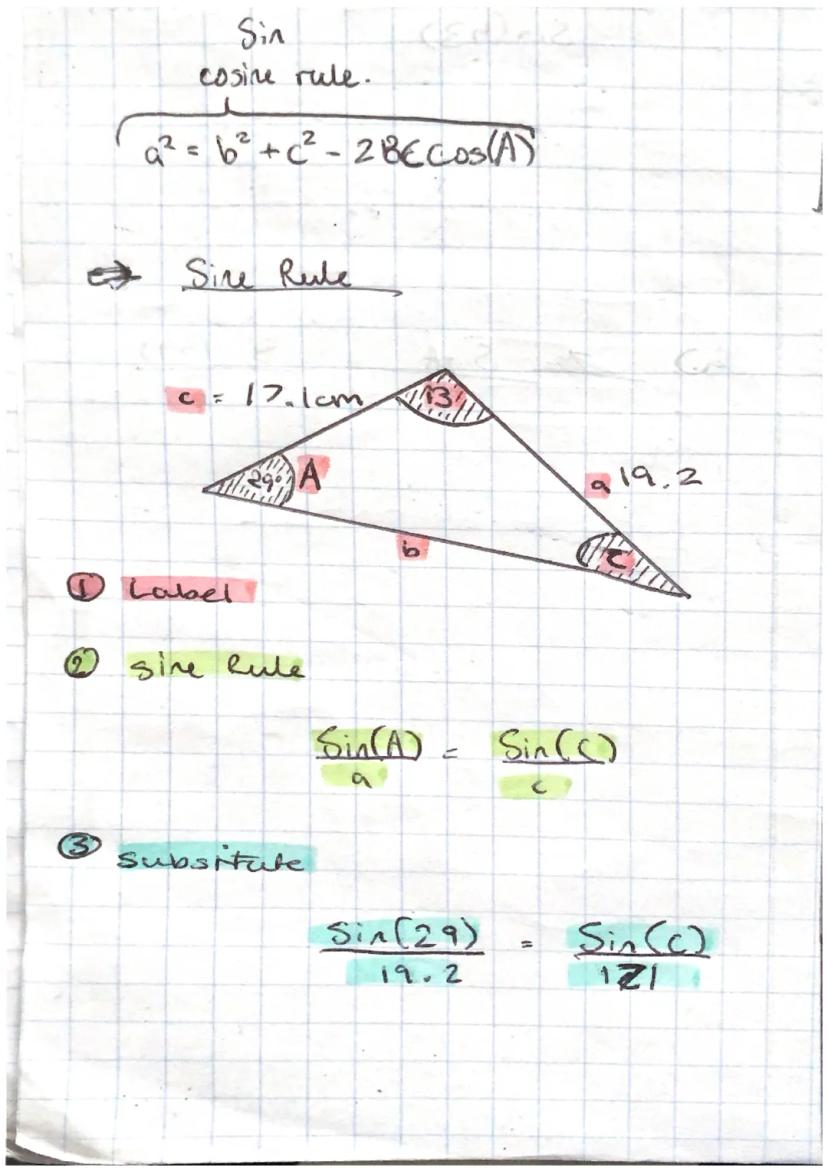 Sin
cosine rule.
a² = b² + c² - 2BCCos(A)
⇒ Sine Rule
c = 17.1cm
B
29°
A
a 19.2
b
C
① Label
② sine Rule
Sin(A)/a = Sin(C)/c
③ subsitute
Sin(29)/19.2 = Sin(C)/171